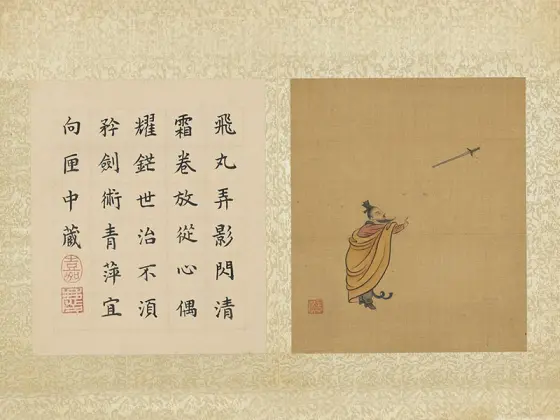 飛丸弄影閃清
霜卷放從心偶
耀鋩世治不湏
矜劍術青萍宜
向匣中藏